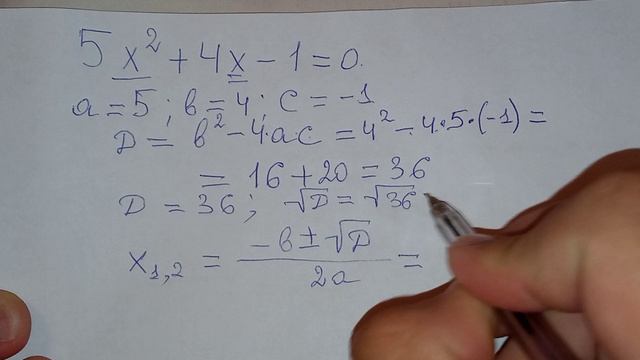 5x² + 4x - 1 = 0.
a = 5; b = 4; c = -1
D = b² - 4ac = 4² - 4·5·(-1) =
= 16 + 20 = 36
D = 36; √D = √36
x₁,₂ = (-b ± √D) / 2a =